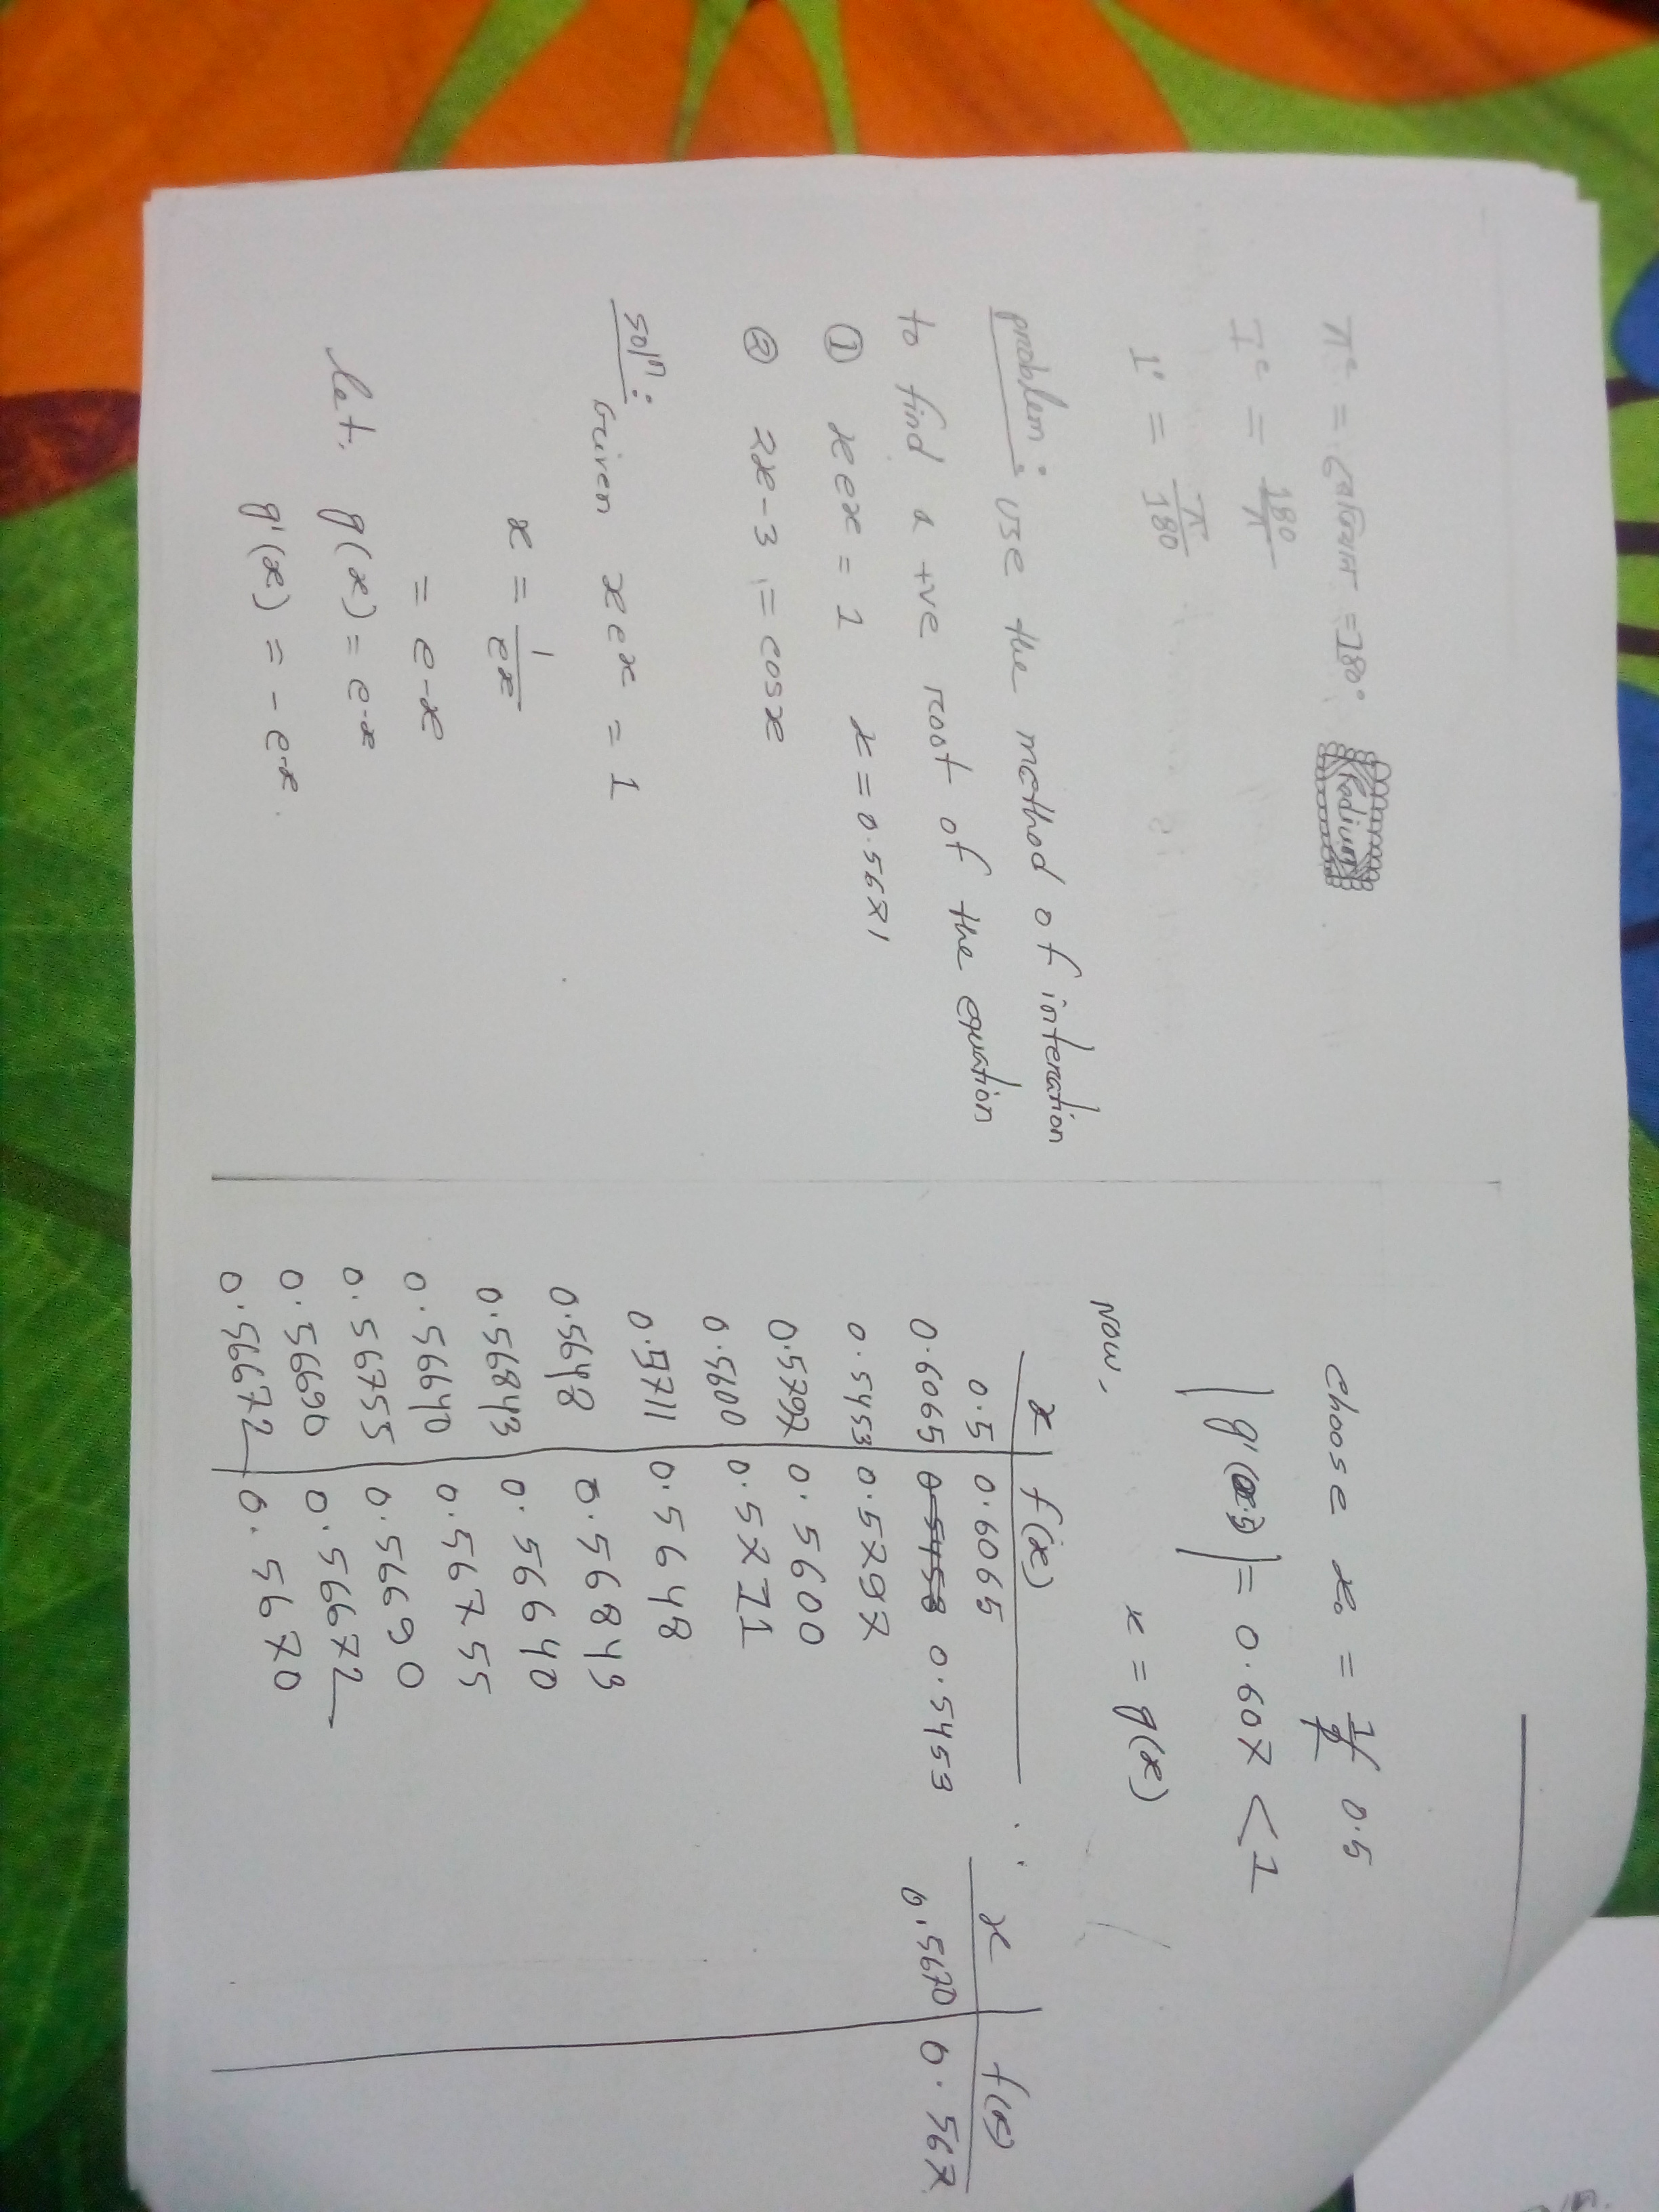 π^c = রেডিয়ান = 180° Radium
1^c = 180/π
1° = π/180
problem: use the method of interation
to find a +ve root of the equation
① xe^x = 1 x = 0.5671
② 2x-3 = cosx
solⁿ:
Given xe^x = 1
x = 1/e^x
= e^-x
let, g(x) = e^-x
g'(x) = -e^-x.
choose x₀ = 0.5
|g'(0.5)| = 0.607 < 1
Now, x = g(x)
x | f(x)
0.5 | 0.6065
0.6065 | 0.5453 0.5453
0.5453 | 0.5797
0.5797 | 0.5600
0.5600 | 0.5711
0.5711 | 0.5648
0.5648 | 0.56843
0.56843 | 0.56640
0.56640 | 0.56755
0.56755 | 0.56690
0.56690 | 0.56672
0.56672 | 0.5670
x | f(x)
0.5670 | 0.567